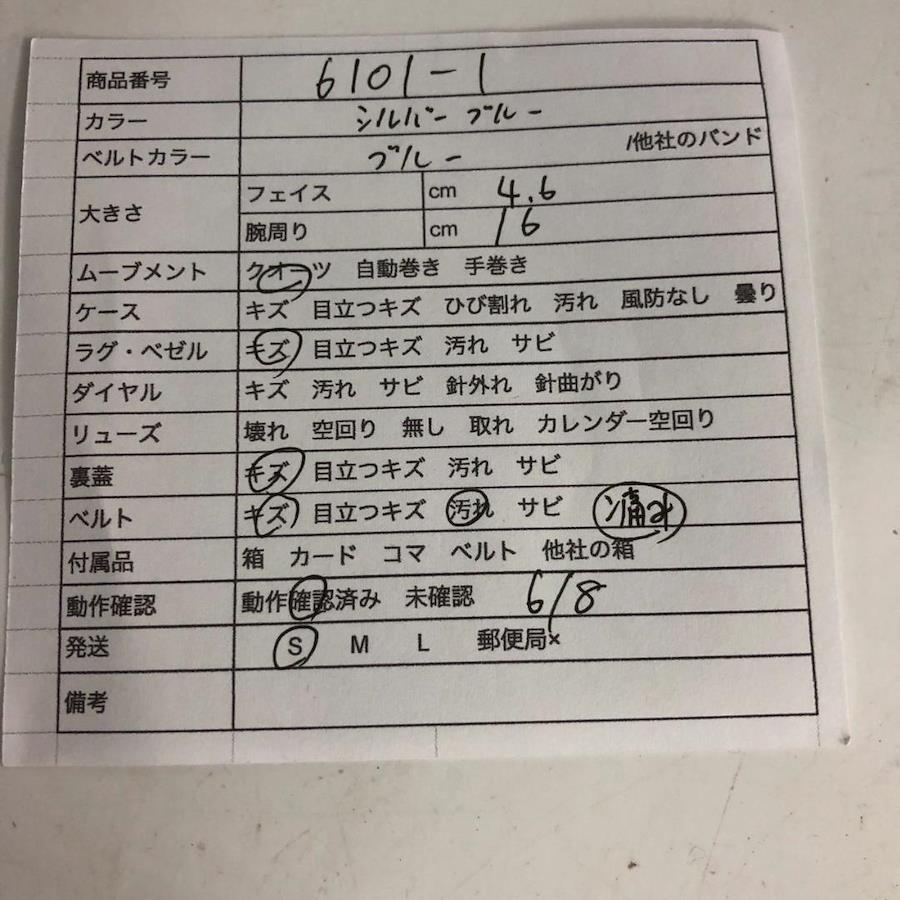 商品番号 6101-1
カラー シルバー ブルー
ベルトカラー ブルー /他社のバンド
大きさ フェイス cm 4.6
腕周り cm 16
ムーブメント クオーツ 自動巻き 手巻き
ケース キズ 目立つキズ ひび割れ 汚れ 風防なし 曇り
ラグ・ベゼル キズ 目立つキズ 汚れ サビ
ダイヤル キズ 汚れ サビ 針外れ 針曲がり
リューズ 壊れ 空回り 無し 取れ カレンダー空回り
裏蓋 キズ 目立つキズ 汚れ サビ
ベルト キズ 目立つキズ 汚れ サビ 痛み
付属品 箱 カード コマ ベルト 他社の箱
動作確認 動作確認済み 未確認 6/8
発送 S M L 郵便局×
備考